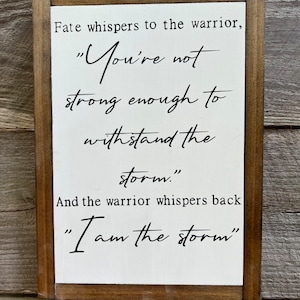 Fate whispers to the warrior,
"You're not
strong enough to
withstand the
storm."
And the warrior whispers back
"I am the storm"